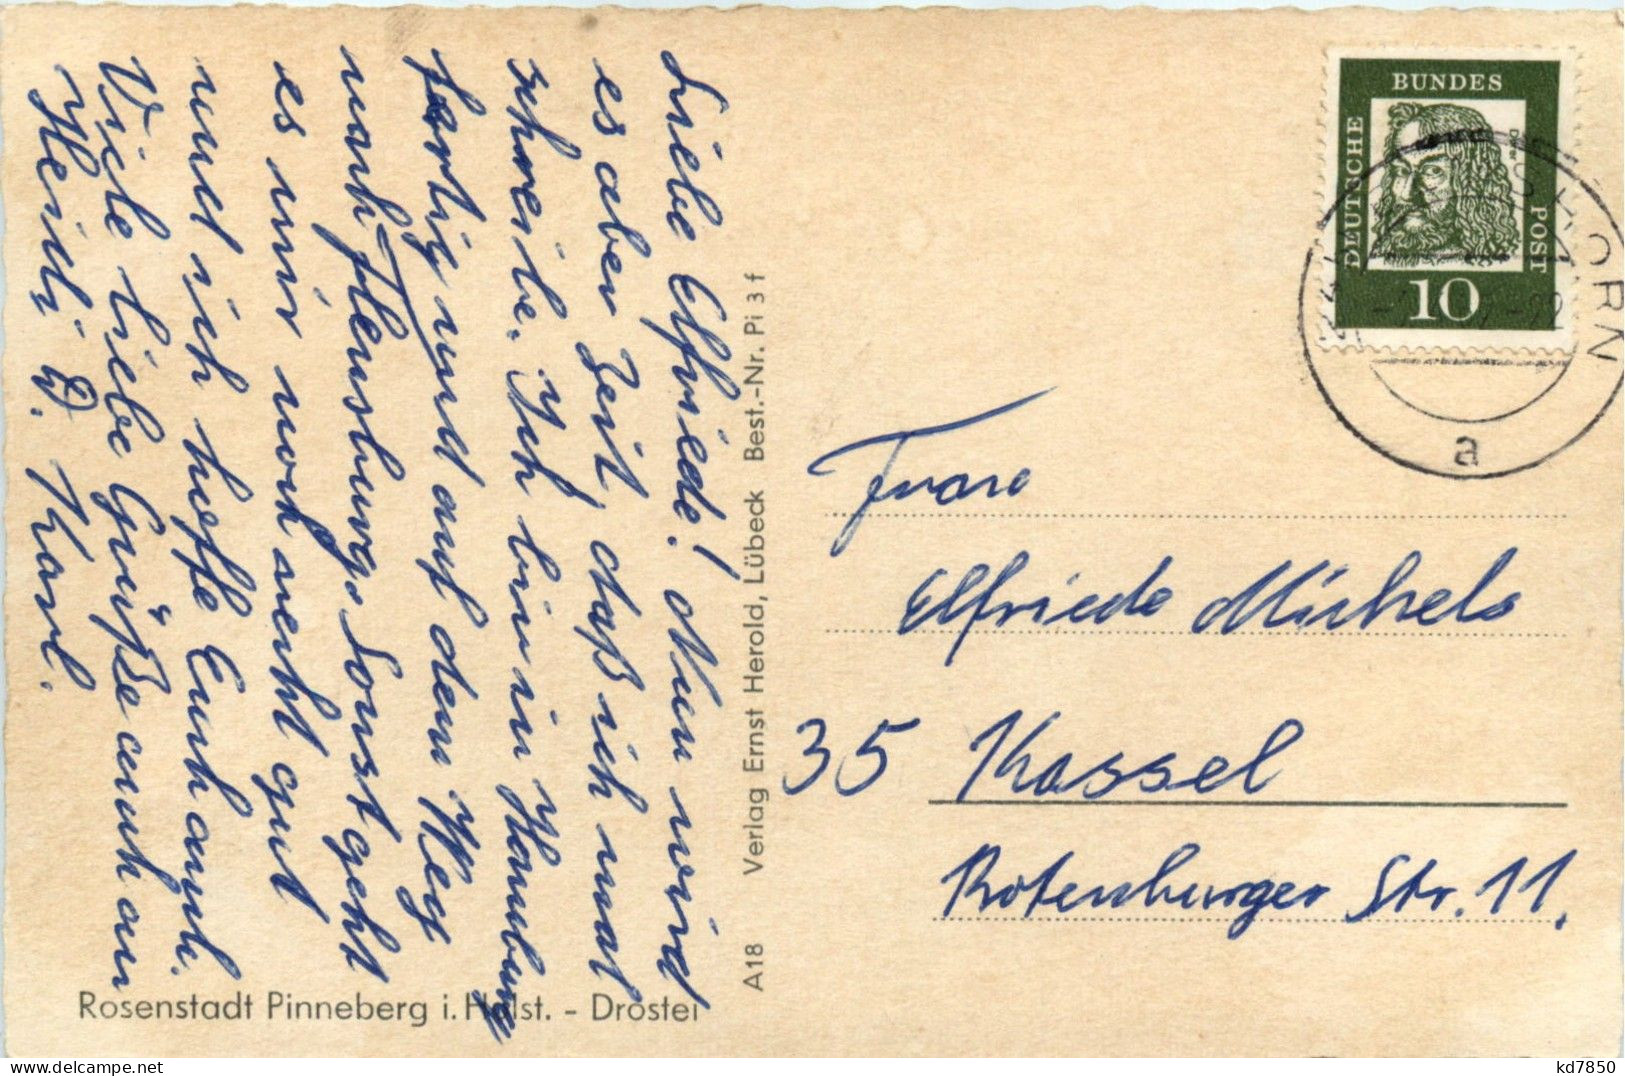 Liebe Elfriede! Nun wird
es aber Zeit, daß ich mal
schreibe. Ich bin in Hamburg
fertig und auf dem Weg
nach Flensburg. Sonst geht
es mir noch recht gut
und ich hoffe Euch auch.
Viele liebe Grüße auch an
Heidi u. Karl.
Rosenstadt Pinneberg i. Holst. - Drostei
A18 Verlag Ernst Herold, Lübeck Best.-Nr. Pi 3 f
DEUTSCHE
BUNDES
POST
Dürer
10
HORN
a
Frau
Elfriede Michels
35 Kassel
Rotenburger Str. 11.
kd7850